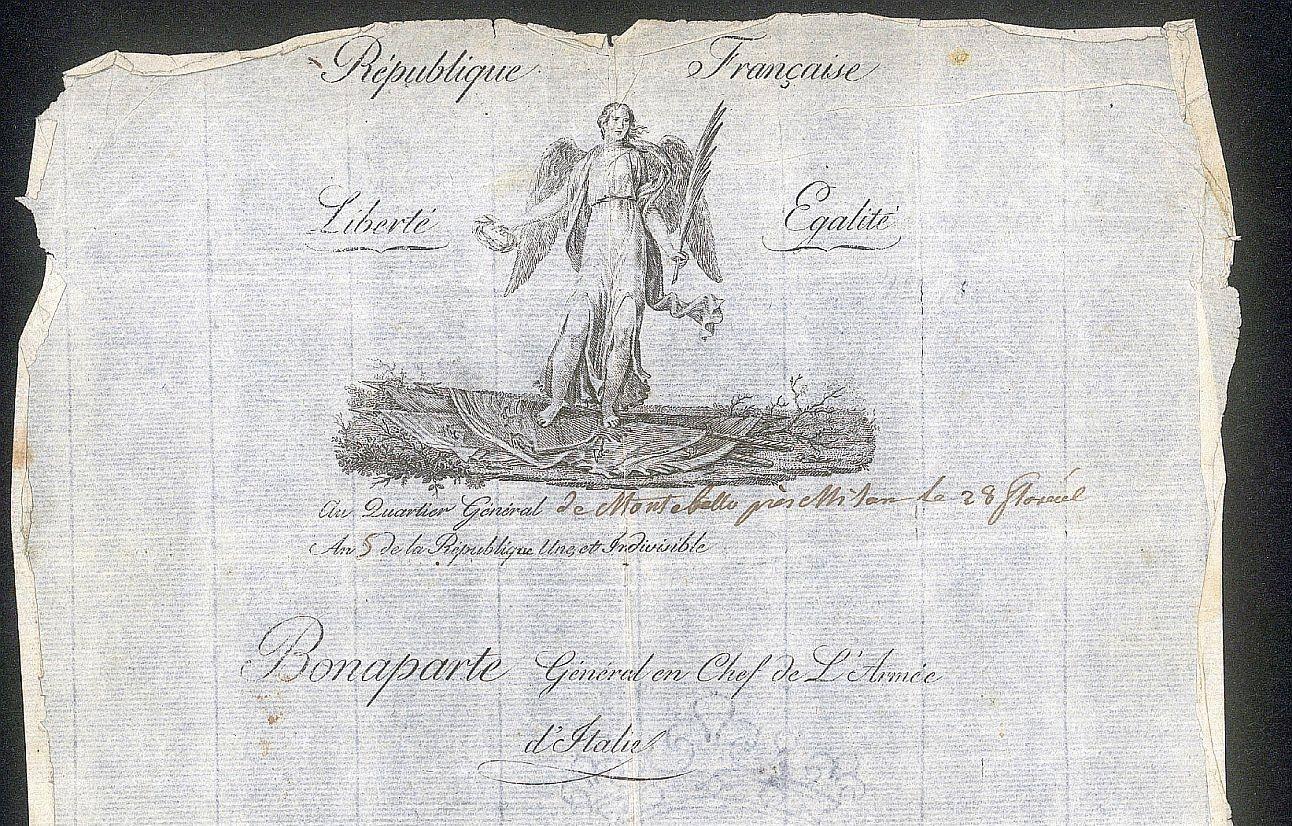 République Française
Liberté Egalité
Au Quartier Général de Montebello près Milan le 28 floréal
An 5 de la République Une et Indivisible
Bonaparte Général en Chef de L'Armée
d'Italie